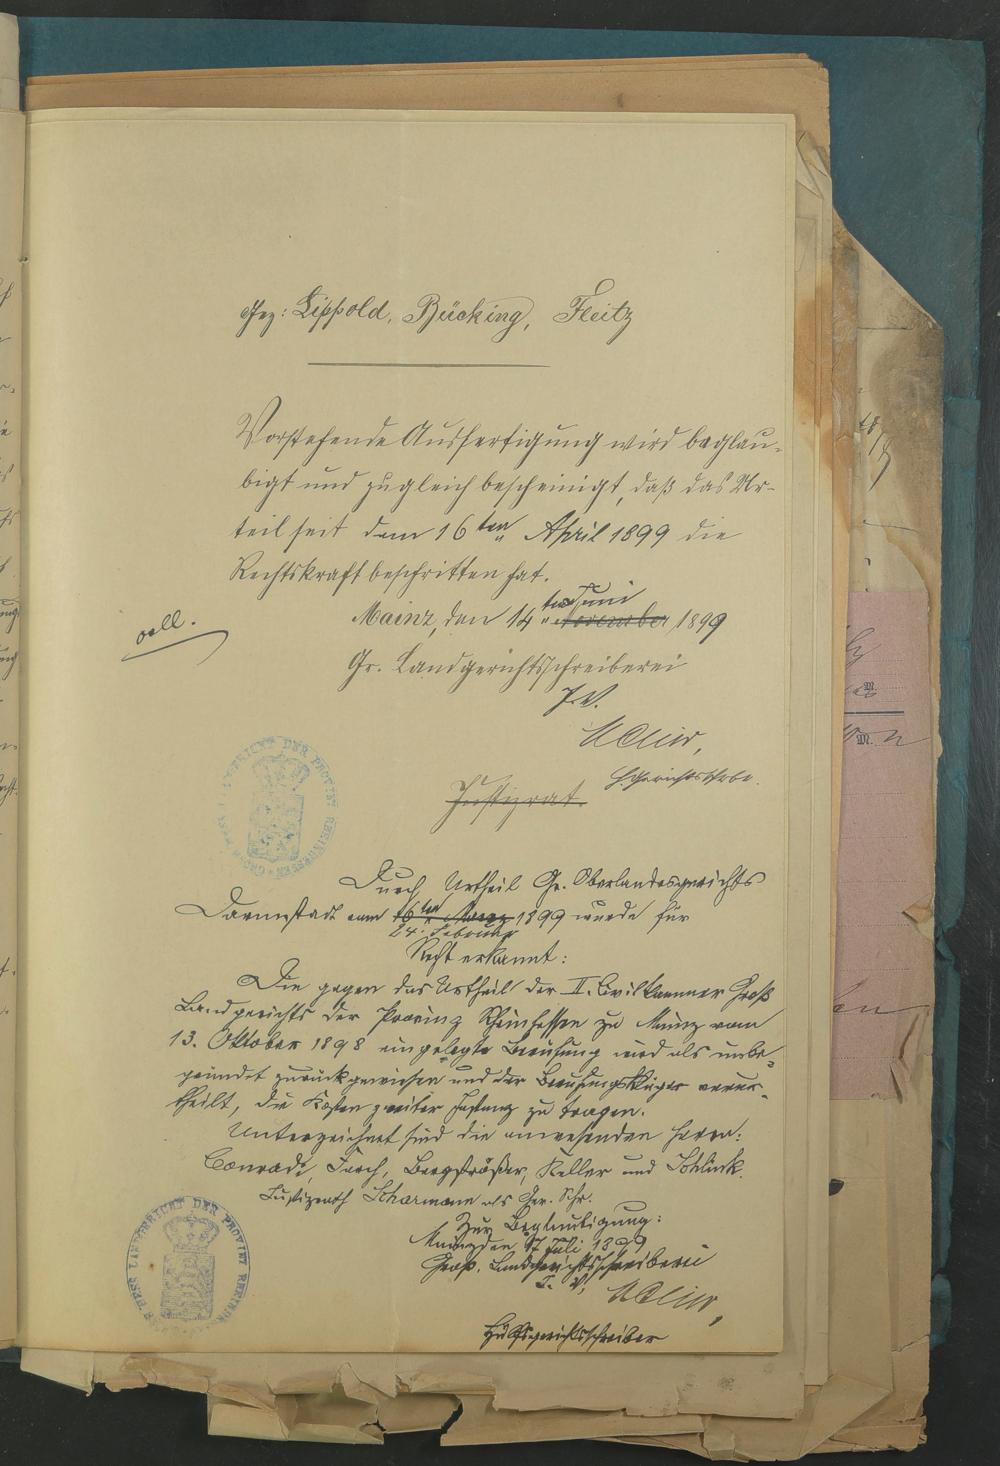 Gez: Lippold, Bücking, Fleitz
Vorstehende Ausfertigung wird beglau-
bigt und zugleich bescheinigt, daß das Ur-
teil seit dem 16ten April 1899 die
Rechtskraft beschritten hat.
Mainz, den 14ten November Juni 1899
coll.
Gr. Landgerichtsschreiberei
J. V.
H.Gerichtsschrbr.
Justizrat.
LANDGERICHT DER PROVINZ RHEINHESSEN
Durch Urtheil Gr. Oberlandesgerichts
Darmstadt vom 16ten März 1899 wurde für
24. Februar
Recht erkannt:
Die gegen das Urtheil der II. Civilkammer Groß
Landgerichts der Provinz Rheinhessen zu Mainz vom
13. Oktober 1898 eingelegte Berufung wird als unbe-
gründet zurückgewiesen und der Berufungskläger verur-
theilt, die Kosten zweiter Instanz zu tragen.
Unterzeichnet sind die anwesenden Herren:
Conradi, Bergsträßer, Keller und Schlink.
Justizrath Scharmann als Ger. Schr.
Zur Beglaubigung:
Mainz den 17 Juli 1899
Groß. Landgerichtsschreiberei
J. V.
Hülfsgerichtsschreiber
HESS LANDGERICHT DER PROVINZ RHEINH